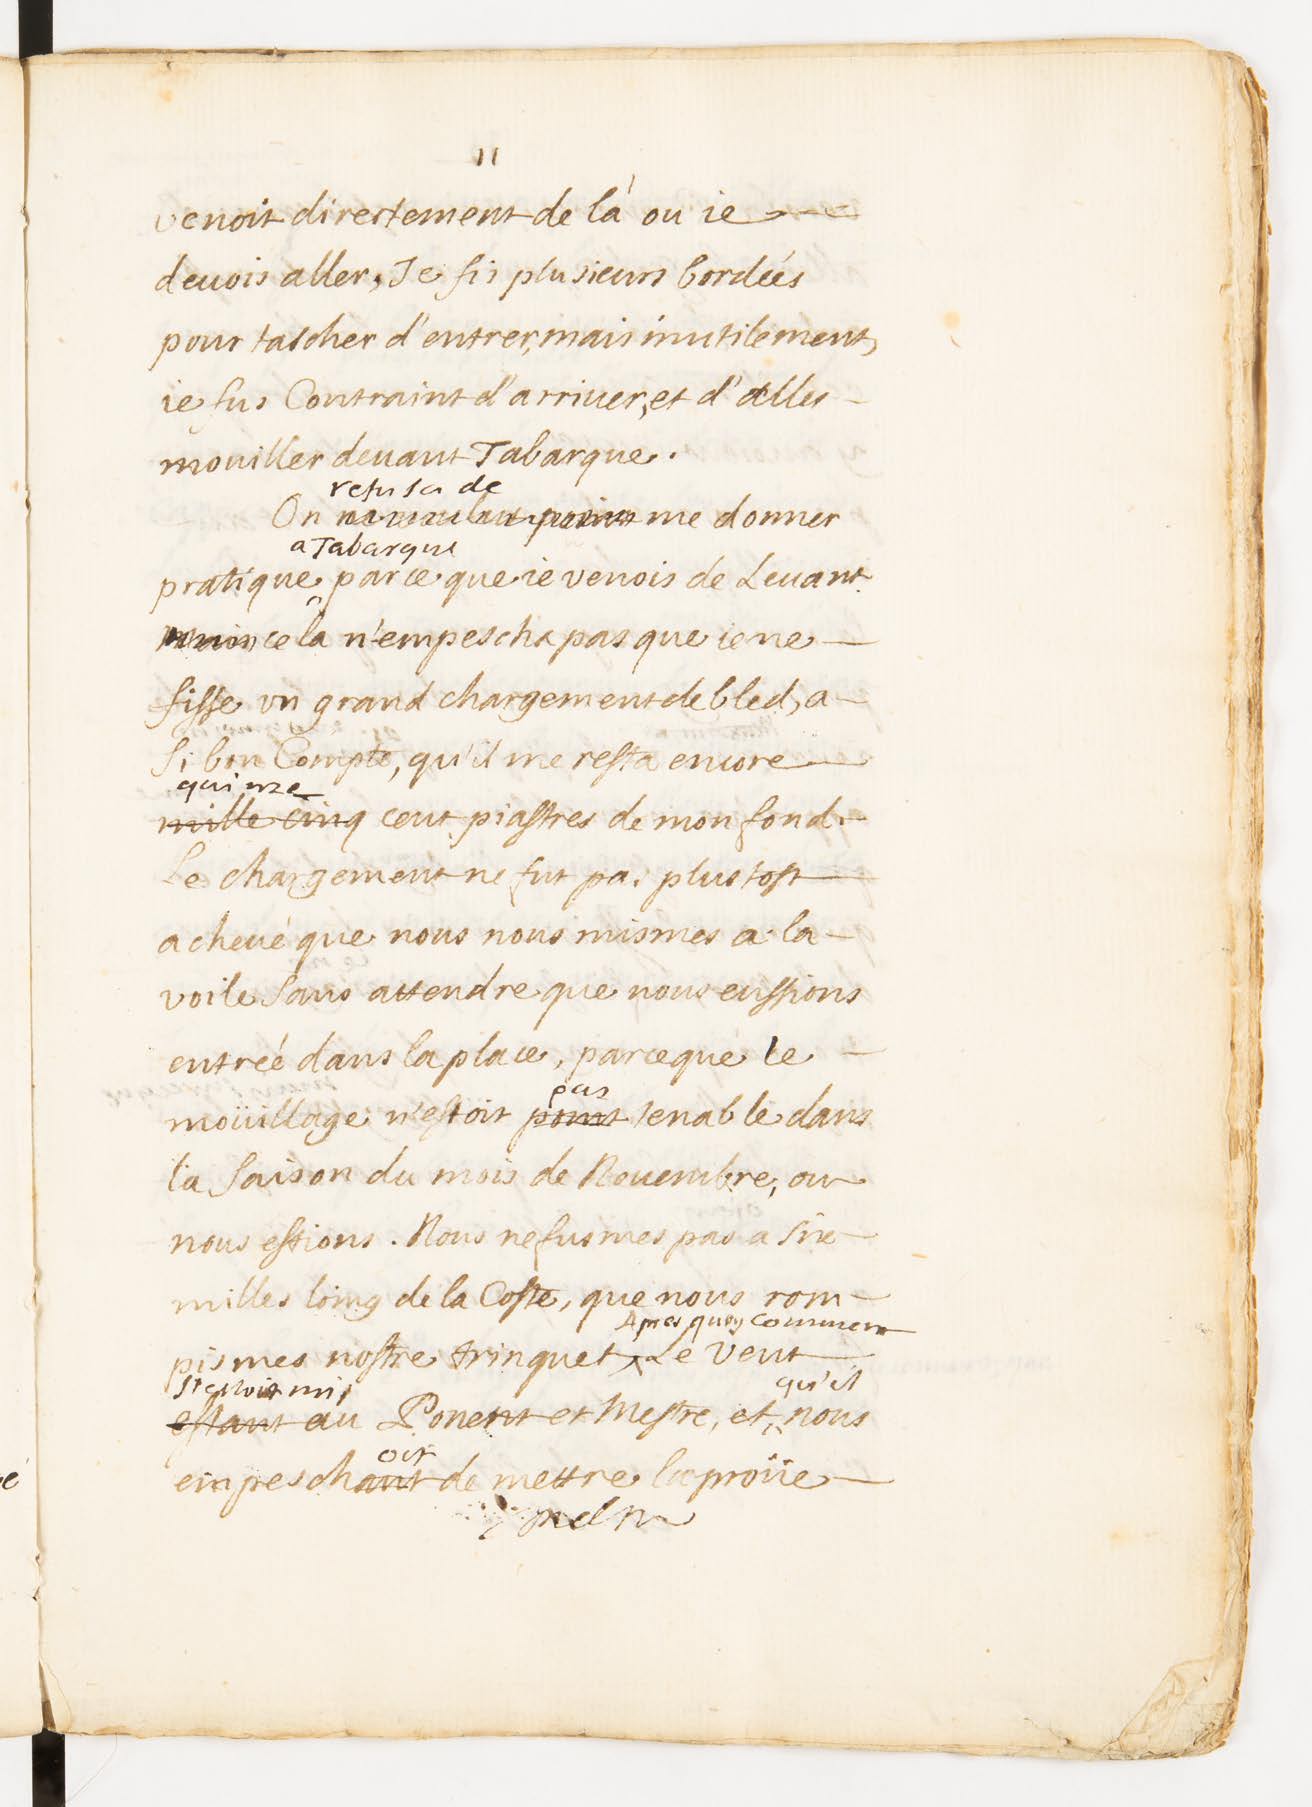 11
venoit directement de là ou ie
deuois aller, Je fis plusieurs bordées
pour tascher d'entrer, mais inutilement,
ie fus Contraint d'arriuer, et d'aller
mouiller deuant Tabarque.
refusa de
On ne voulut point me donner
a Tabarque
pratique parce que ie venois de Leuant
mais cela n'empescha pas que ie ne
fisse vn grand chargement de bled, a
si bon Compte, qu'il me resta encore
quinze
mille cinq cent piastres de mon fond.
Le chargement ne fut pas plustost
acheué que nous nous mismes a la
voile sans attendre que nous eussions
entrée dans la place, parceque le
pas
moüillage n'estoit point tenable dans
la saison du mois de Nouembre, ou
nous estions. Nous ne fusmes pas a six
milles loing de la Coste, que nous rom-
Apres quoy comme
pismes nostre trinquet, Le Vent
s'estoit mis qu'il
estant au Ponent et Mestre, et nous
oit
empeschant de mettre la proüe